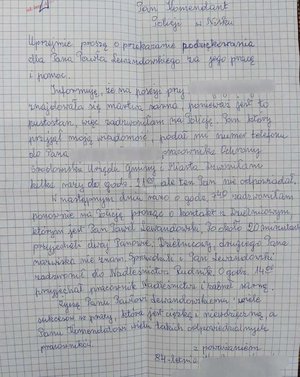 Pan Komendant
Policji w Nisku
Uprzejmie proszę o przekazanie podziękowania
dla Pana Pawła Lewandowskiego za jego pracę
i pomoc.
Informuję, że na posesji przy
znajdowała się martwa sarna, ponieważ jest to
pustostan, więc zadzwoniłam na Policję. Pan który
przyjął moją wiadomość, podał mi numer telefonu
do Pana pracownika Ochrony
Środowiska Urzędu Gminy i Miasta. Dzwoniłam
kilka razy do godz. 21⁰⁰, ale ten Pan nie odpowiadał.
W następnym dniu rano o godz. 7⁴⁰ zadzwoniłam
ponownie na Policję prosząc o kontakt z dzielnicowym,
którym jest Pan Paweł Lewandowski. Za około 20 minut
przyjechali dwaj Panowie. Dzielnicowy, drugiego Pana
nazwiska nie znam. Sprawdzali i Pan Lewandowski
zadzwonił do Nadleśnictwa Rudnik. O godz. 14⁰⁰
przyjechał pracownik Nadleśnictwa i zabrał sarnę.
Życzę Panu Pawłowi Lewandowskiemu wiele
sukcesów w pracy, która jest ciężka i niewdzięczna, a
Panu Komendantowi wielu takich odpowiedzialnych
pracowników.
z poważaniem
84-letnia